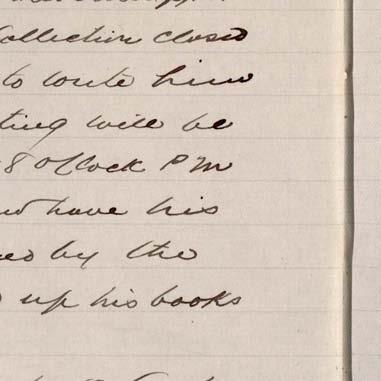 Collection closed
to write him
ting will be
8 O'Clock P M
have his
by the
up his books